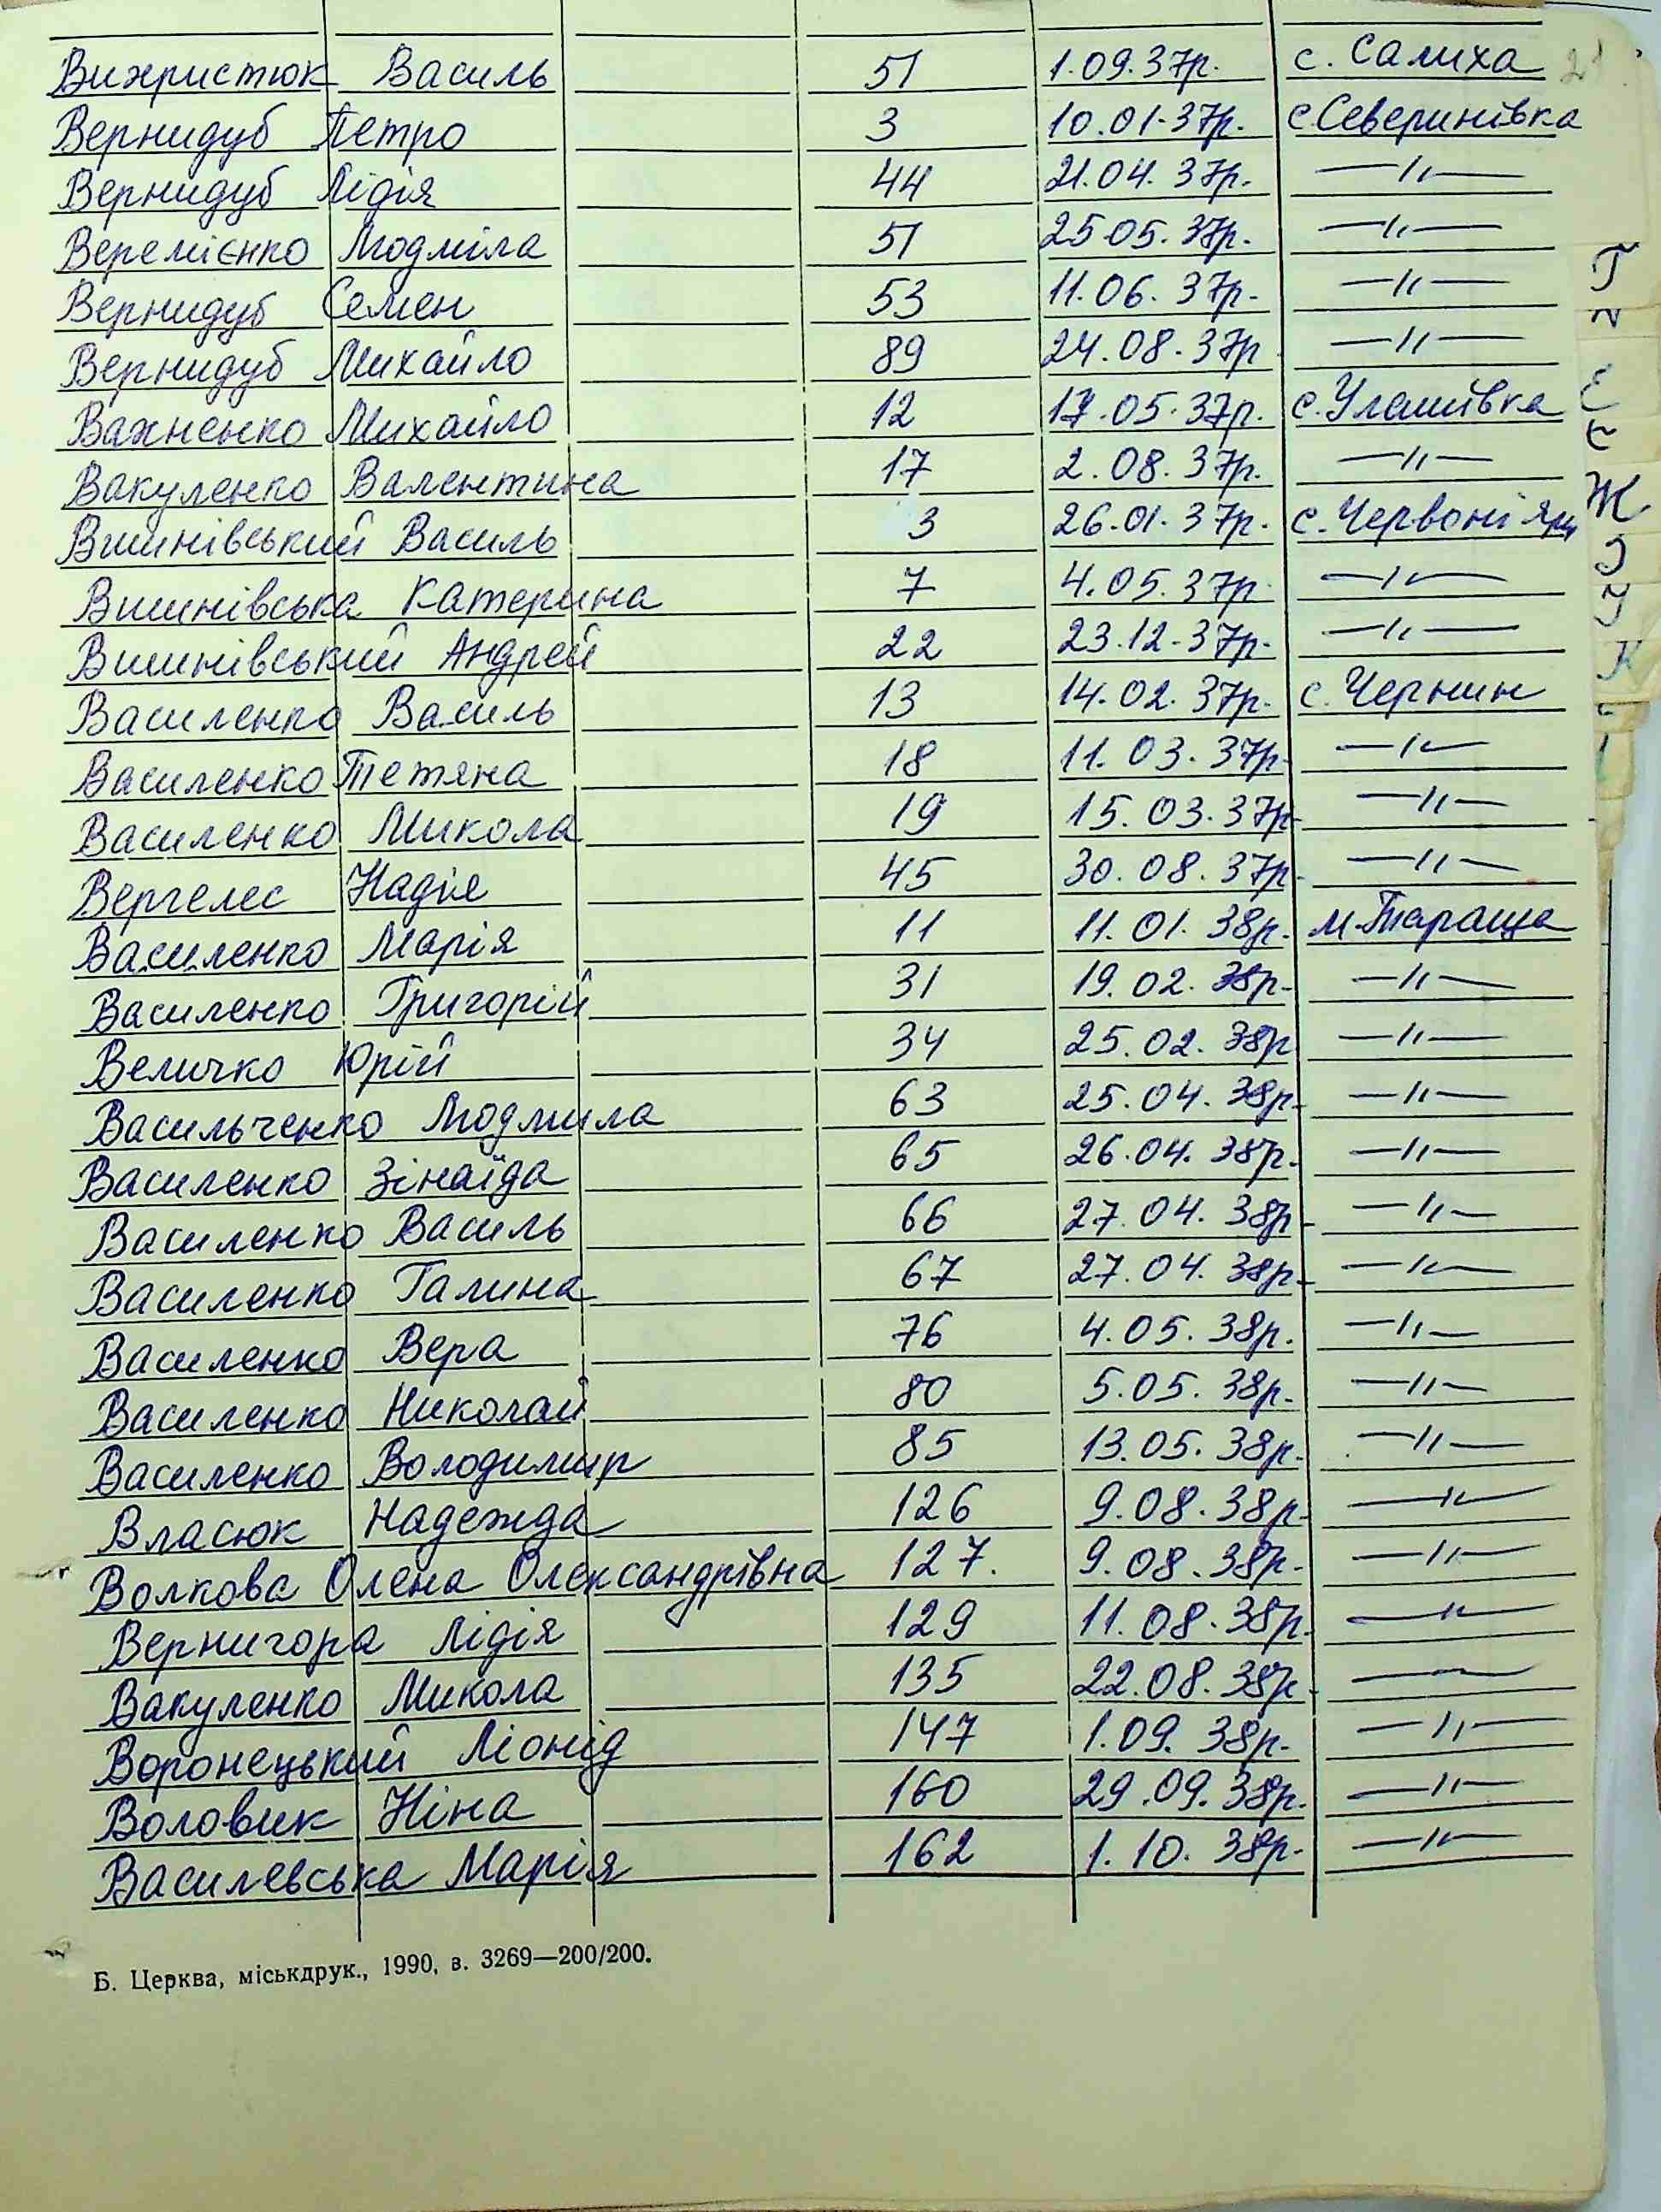 Вихристюк Василь 51 1.09.37р. с. Салиха
Вернидуб Петро 3 10.01.37р. с. Северинівка
Вернидуб Лідія 44 21.04.37р. —〃—
Веремієнко Людміла 51 25.05.37р. —〃—
Вернидуб Семен 53 11.06.37р. —〃—
Вернидуб Михайло 89 24.08.37р —〃—
Важненко Михайло 12 17.05.37р. с. Улашівка
Вакуленко Валентина 17 2.08.37р. —〃—
Вишнівський Василь 3 26.01.37р. с. Червоні Яри
Вишнівська Катерина 7 4.05.37р. —〃—
Вишнівський Андрей 22 23.12.37р. —〃—
Василенко Василь 13 14.02.37р. с. Чернин
Василенко Тетяна 18 11.03.37р. —〃—
Василенко Микола 19 15.03.37р. —〃—
Вергелес Надія 45 30.08.37р. —〃—
Василенко Марія 11 11.01.38р. м. Тараща
Василенко Григорій 31 19.02.38р. —〃—
Величко Юрій 34 25.02.38р —〃—
Васильченко Людмила 63 25.04.38р. —〃—
Василенко Зінаїда 65 26.04.38р. —〃—
Василенко Василь 66 27.04.38р. —〃—
Василенко Галина 67 27.04.38р. —〃—
Василенко Вера 76 4.05.38р. —〃—
Василенко Николай 80 5.05.38р. —〃—
Василенко Володимир 85 13.05.38р. —〃—
Власюк Надежда 126 9.08.38р. —〃—
Волкова Олена Олександрівна 127. 9.08.38р. —〃—
Вернигора Лідія 129 11.08.38р. —〃—
Вакуленко Микола 135 22.08.38р. —〃—
Воронецький Ліонід 147 1.09.38р. —〃—
Воловик Ніна 160 29.09.38р. —〃—
Василевська Марія 162 1.10.38р. —〃—
Б. Церква, міськдрук., 1990, в. 3269—200/200.